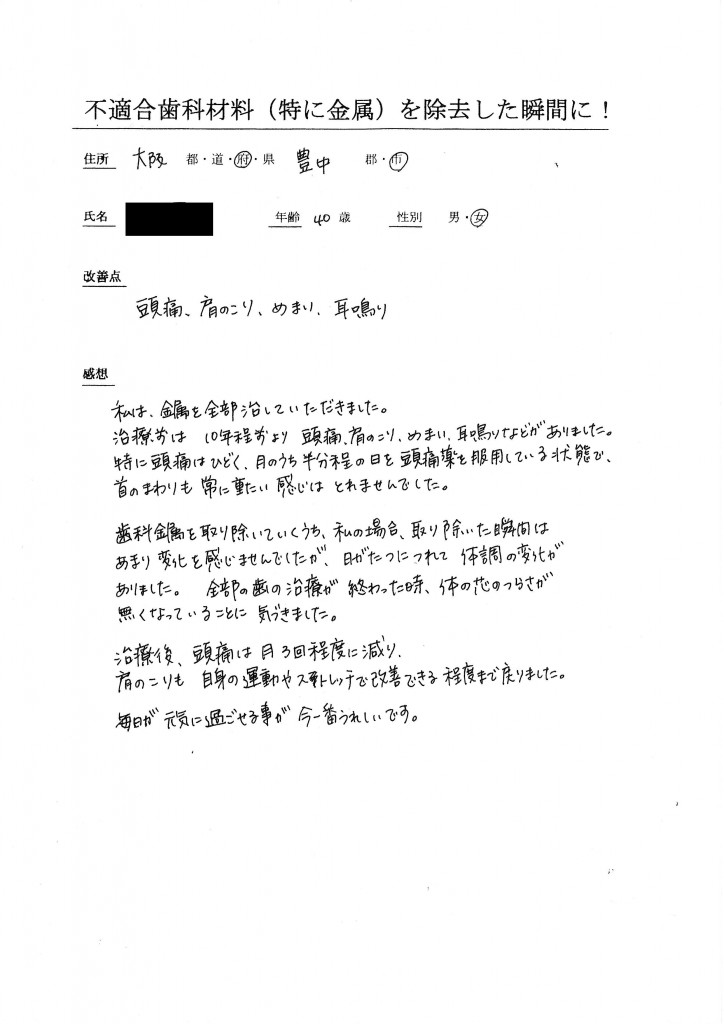 不適合歯科材料（特に金属）を除去した瞬間に！
住所 大阪 都・道・府・県 豊中 郡・市
氏名 年齢 40 歳 性別 男・女
改善点
頭痛、肩のこり、めまい、耳鳴り
感想
私は、金属を全部治していただきました。
治療前は 10年程前より 頭痛、肩のこり、めまい、耳鳴りなどがありました。
特に頭痛はひどく、月のうち半分程の日を頭痛薬を服用している状態で、
首のまわりも常に重たい感じはとれませんでした。
歯科金属を取り除いていくうち、私の場合、取り除いた瞬間は
あまり変化を感じませんでしたが、日がたつにつれて 体調の変化が
ありました。 全部の歯の治療が 終わった時、体の芯のつらさが
無くなっていることに 気づきました。
治療後、頭痛は月3回程度に減り、
肩のこりも 自身の運動やストレッチで改善できる程度まで戻りました。
毎日が 元気に過ごせる事が 今一番うれしいです。